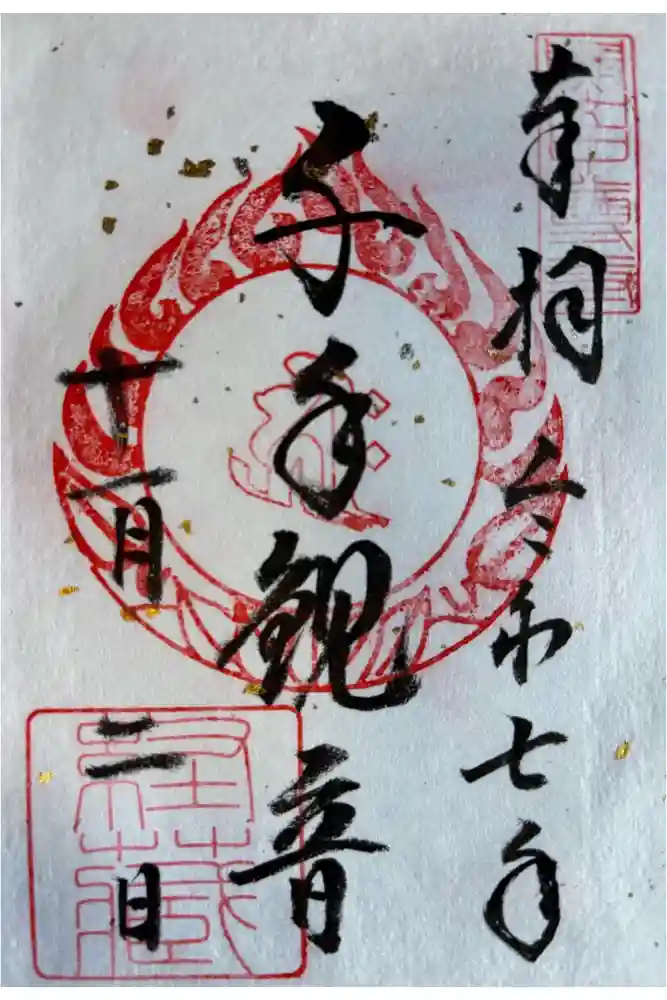 奉拝 令和七年
千手観音
十一月二日